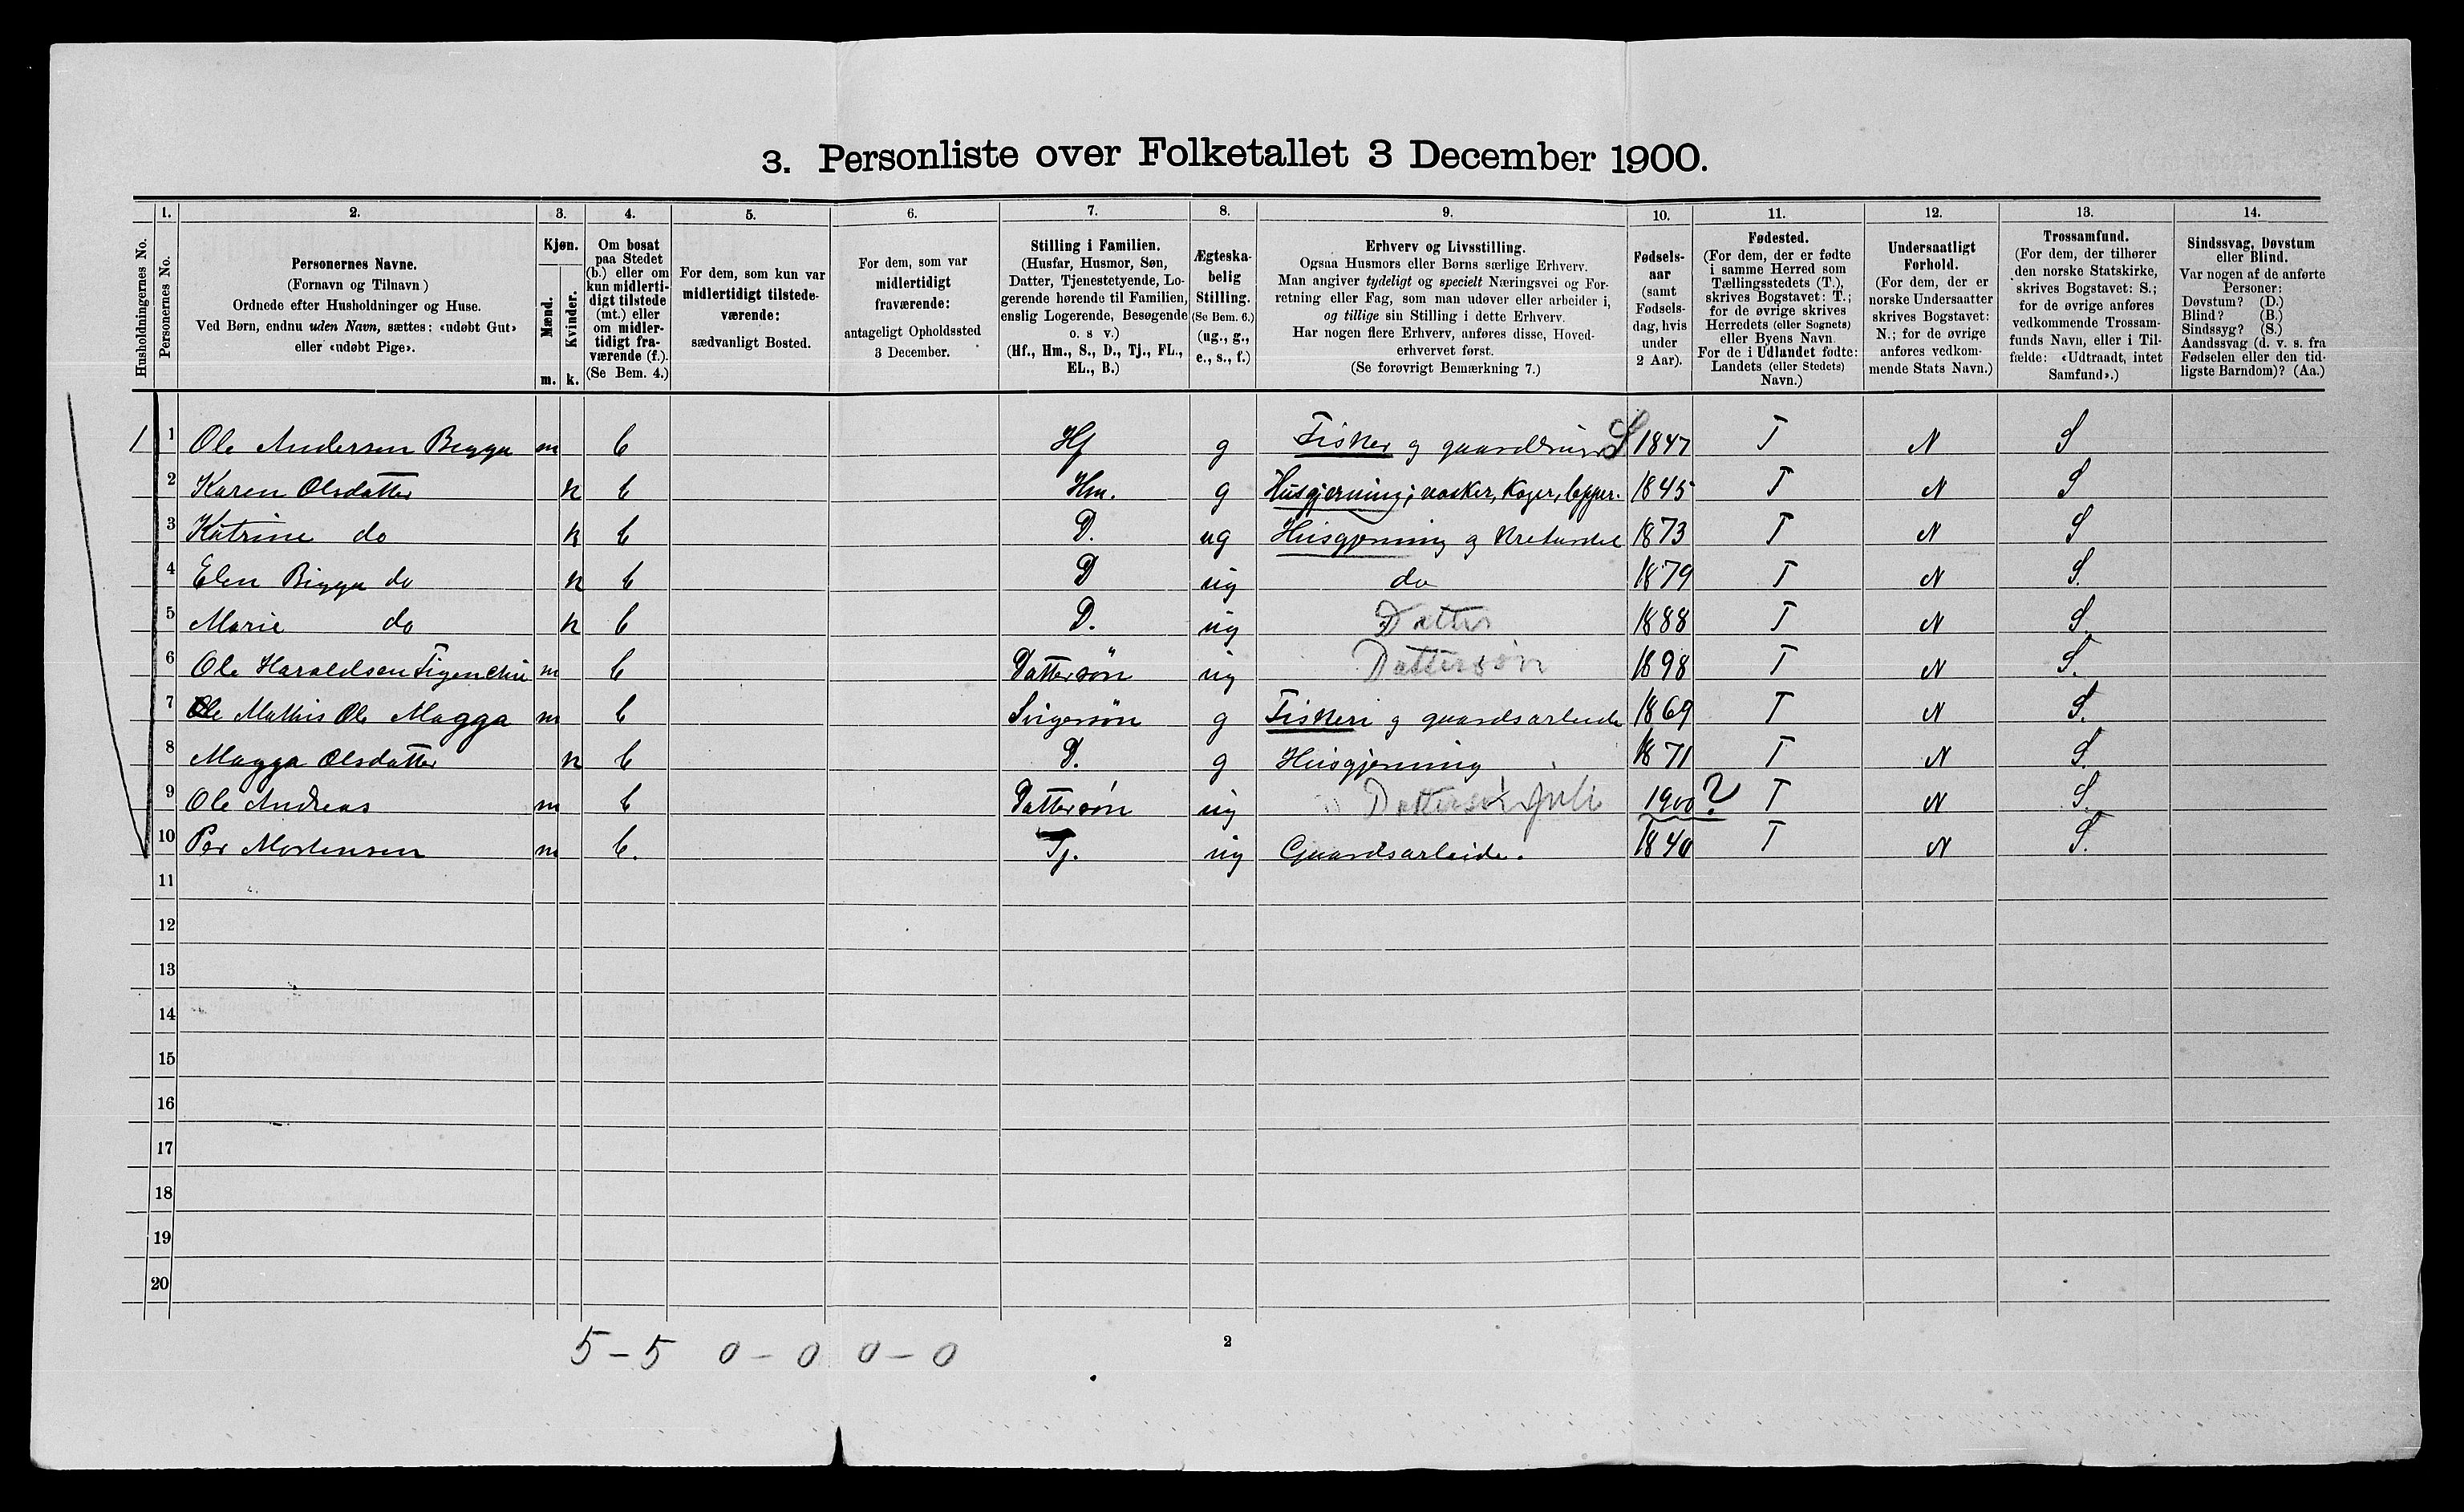 3. Personliste over Folketallet 3 December 1900.
1. 2. 3. 4. 5. 6. 7. 8. 9. 10. 11. 12. 13. 14.
Husholdningernes No.
Personernes No.
Personernes Navne.
(Fornavn og Tilnavn)
Ordnede efter Husholdninger og Huse.
Ved Børn, endnu uden Navn, sættes: «udøbt Gut»
eller «udøbt Pige».
Kjøn.
Mænd.
Kvinder.
m. k.
Om bosat
paa Stedet
(b.) eller om
kun midlerti-
digt tilstede
(mt.) eller
om midler-
tidigt fra-
værende (f.).
(Se Bem. 4.)
For dem, som kun var
midlertidigt tilstede-
værende:
sædvanligt Bosted.
For dem, som var
midlertidigt
fraværende:
antageligt Opholdssted
3 December.
Stilling i Familien.
(Husfar, Husmor, Søn,
Datter, Tjenestetyende, Lo-
gerende hørende til Familien,
enslig Logerende, Besøgende
o. s v.)
(Hf., Hm., S., D., Tj., FL.,
EL., B.)
Ægteska-
belig
Stilling.
(Se Bem. 6.)
(ug., g.,
e., s., f.)
Erhverv og Livsstilling.
Ogsaa Husmors eller Børns særlige Erhverv.
Man angiver tydeligt og specielt Næringsvei og For-
retning eller Fag, som man udøver eller arbeider i,
og tillige sin Stilling i dette Erhverv.
Har nogen flere Erhverv, anføres disse, Hoved-
erhvervet først.
(Se forøvrigt Bemærkning 7.)
Fødsels-
aar
(samt
Fødsels-
dag, hvis
under
2 Aar).
Fødested.
(For dem, der er fødte
i samme Herred som
Tællingsstedets (T.),
skrives Bogstavet: T.;
for de øvrige skrives
Herredets (eller Sognets)
eller Byens Navn.
For de i Udlandet fødte:
Landets (eller Stedets)
Navn.)
Undersaatligt
Forhold.
(For dem, der er
norske Undersaatter
skrives Bogstavet:
N.; for de øvrige
anføres vedkom-
mende Stats Navn.)
Trossamfund.
(For dem, der tilhører
den norske Statskirke,
skrives Bogstavet: S.;
for de øvrige anføres
vedkommende Trossam-
funds Navn, eller i Til-
fælde: «Udtraadt, intet
Samfund».)
Sindssvag, Døvstum
eller Blind.
Var nogen af de anførte
Personer:
Døvstum? (D.)
Blind? (B.)
Sindssyg? (S.)
Aandssvag (d. v. s. fra
Fødselen eller den tid-
ligste Barndom)? (Aa.)
1 1 Ole Andersen Bigga m b Hf g Fisker og S 1847 T N S
2 Karen Olsdatter k b Hm. g Husgjerning; vasker, Koger, lapper. 1845 T N S
3 Katrine do k b D. ug Husgjerning og 1873 T N S
4 Elen Bigga do k b D ug do 1879 T N S.
5 Marie do k b D. ug Datter 1888 T N S.
6 Ole Haraldsen m b Dattersøn ug Dattersøn 1898 T N S.
7 Mathis Ol. Magga m b Svigersøn g Fisker og gaardsarbeide 1869 T N S.
8 Magga Olsdatter k b D. g Husgjerning 1871 T N S.
9 Ole Andreas m b Dattersøn ug Dattersøn Juli 1900 ? T N S.
10 Per Mortensen m b. Tj. ug Gaardsarbeide. 1840 T N S.
11
12
13
14
15
16
17
18
19
20
5 – 5 0 – 0 0 – 0
2